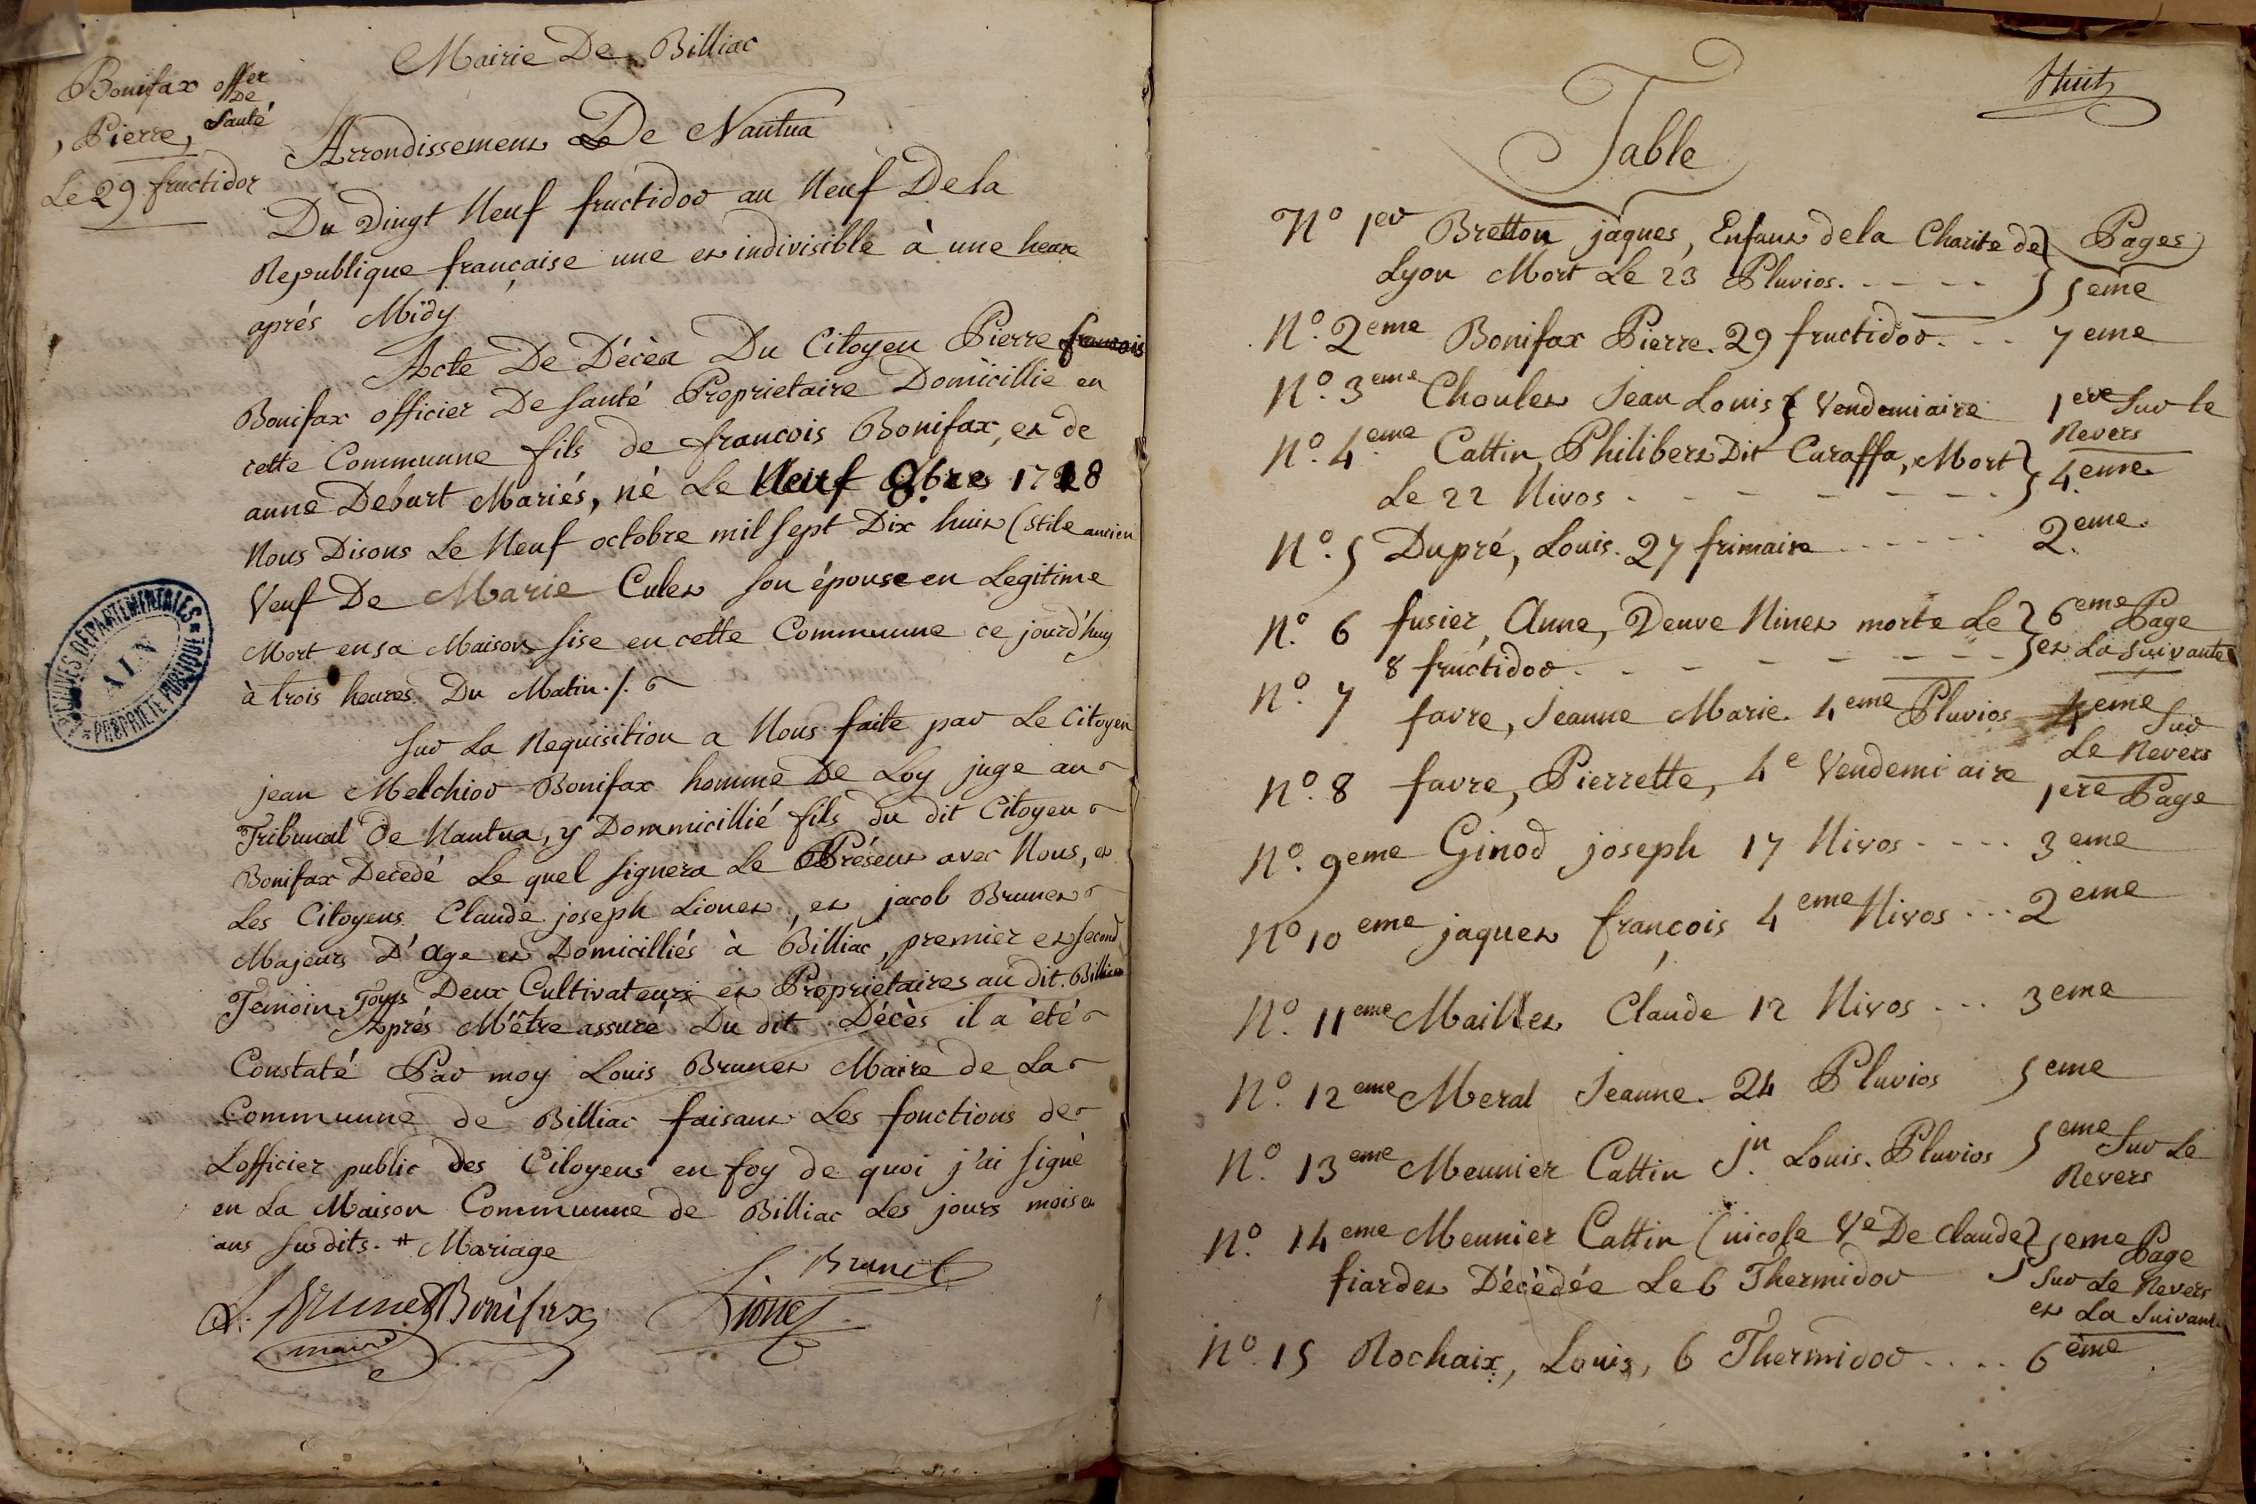 Mairie De Billiac
Bonifax offer
De
Santé
Pierre,
Le 29 fructidor
Arrondissement De Nantua
Du Vingt Neuf fructidor an Neuf De la
Republique française une et indivisible à une heure
aprés Midy
Acte De Décès Du Citoyen Pierre francois
Bonifax officier De santé Proprietaire Domicillié en
cette Communne fils de francois Bonifax, et de
anne Debart Mariés, né Le Neuf 8.bre 1718
Nous Disons Le Neuf octobre mil sept Dix huit (stile ancien
Veuf De Marie Culet son épouse en Legitime
Mort en sa Maison sise en cette Communne ce jourd'huy
à trois heures Du Matin ./.
Sur La Requisition a Nous faite par Le Citoyen
jean Melchior Bonifax homme De Loy juge au
Tribunal De Nantua, y Dommicillié fils du dit Citoyen
Bonifax Decedé Le quel signera Le Présent avec Nous, et
Les Citoyens Claude joseph Lionet, et jacob Brunet
Majeurs D'age et Domicilliés à Billiac, premier et second
Temoin, Tous Deux Cultivateurs et Proprietaires au dit Billiac
Aprés M'être assuré Du dit Décès il a été
Constaté Par moy Louis Brunet Maire de La
Communne de Billiac faisant Les fonctions de
Lofficier public des Citoyens en foy de quoi j'ai signé
en La Maison Communne de Billiac Les jours mois et
ans susdits. # Mariage
J. Brunet
L. Brunet Bonifax Lionet
maire
Huit
Table
Pages
N.º 1er Bretton jaques, Enfant de la Charite de
Lyon Mort Le 23 Pluvios. - - - - 5eme
N.º 2eme Bonifax Pierre. 29 fructidor. - - 7eme
N.º 3eme Choulet Jean Louis 5 Vendemiaire 1ere Sur le
Revers
N.º 4eme Cattin, Philibert Dit Caraffa, Mort
Le 22 Nivos - - - - - - - 4eme
N.º 5 Dupré, Louis. 27 frimaire - - - - - 2eme.
N.º 6 fusier, Anne, Veuve Ninet morte Le 6eme Page
8 fructidor. - - - - - - - et La suivante
N.º 7 favre, Jeanne Marie. 4eme Pluvios 4eme Sur
Le Revers
N.º 8 favre, Pierrette, 4e Vendemiaire 1ere Page
N.º 9eme Ginod joseph 17 Nivos - - - - 3eme
N.º 10eme jaquet françois 4eme Nivos - - - 2eme
N.º 11eme Maillet Claude 12 Nivos - - - 3eme
N.º 12eme Meral Jeanne. 24 Pluvios 5eme
N.º 13eme Meunier Cattin Jn. Louis. Pluvios 5eme Sur Le
Revers
N.º 14eme Meunier Cattin (nicole Ve De claude 5eme Page
fiardet Décèdée Le 6 Thermidor Sur Le Revers
et La Suivante
N.º 15 Rochaix, Louis, 6 Thermidor - - - - 6ème
ARCHIVES DÉPARTEMENTALES
AIN
PROPRIÉTÉ PUBLIQUE